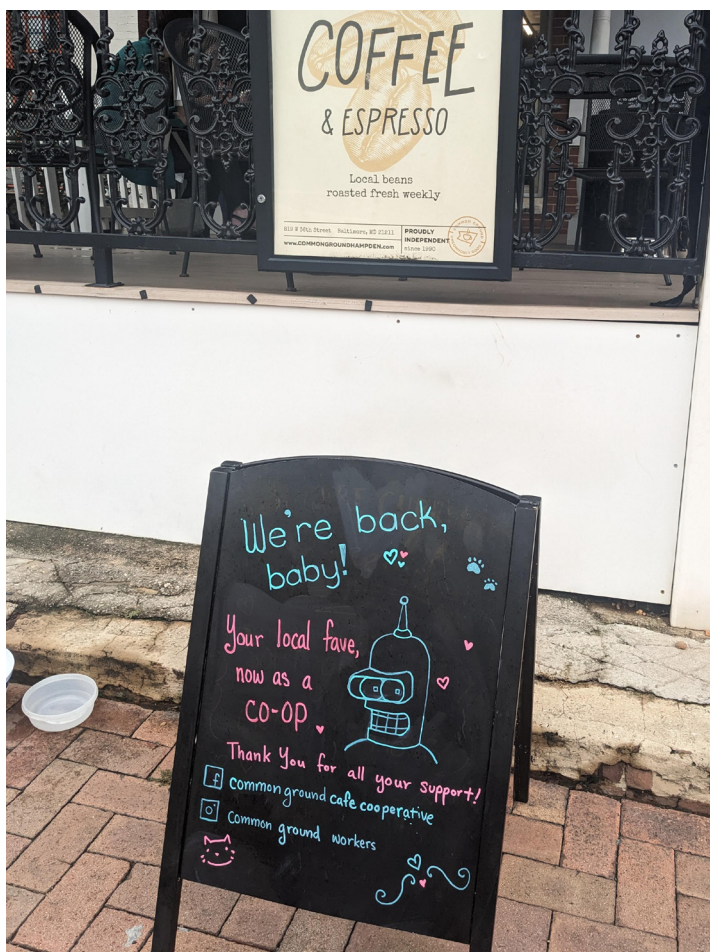 COFFEE
& ESPRESSO
Local beans
roasted fresh weekly
819 W 36th Street Baltimore, MD 21211
www.COMMONGROUNDHAMPDEN.com
PROUDLY
INDEPENDENT
since 1990
We're back,
baby!
Your local fave,
now as a
CO-OP
Thank You for all your support!
common ground cafe cooperative
Common ground workers